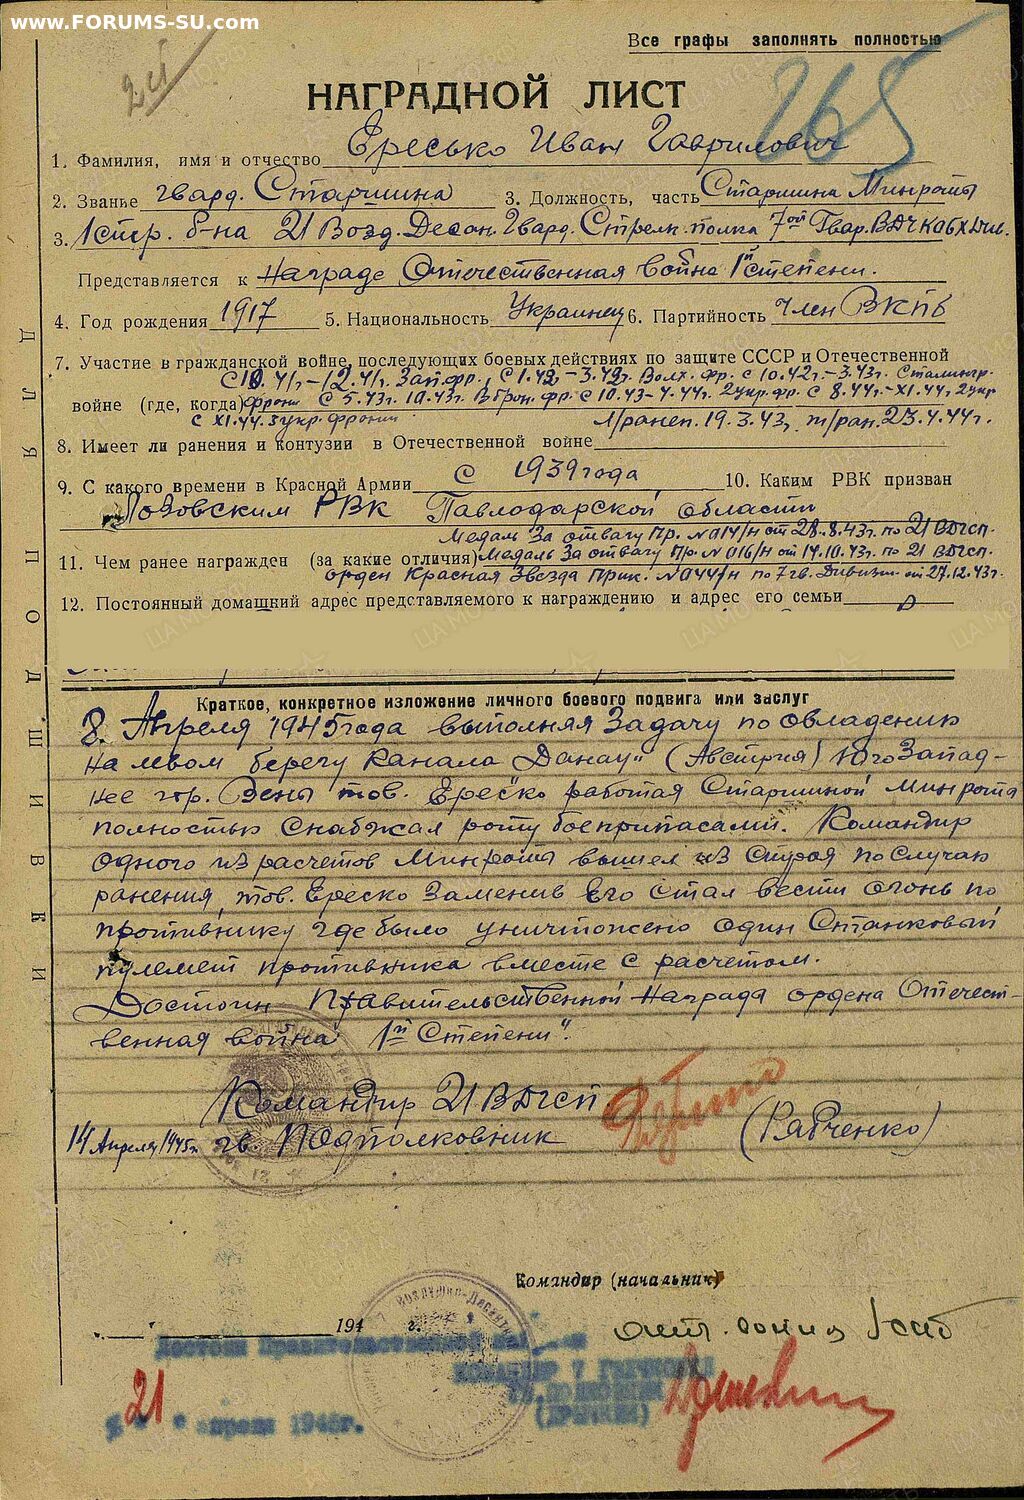 www.FORUMS-SU.com
Все графы заполнять полностью
24
265
НАГРАДНОЙ ЛИСТ
1. Фамилия, имя и отчество Ересько Иван Гаврилович
2. Званье гвард. Старшина 3. Должность, часть Старшина Минроты
3. 1 стр. б-на 21 Возд. Десан. Гвард. Стрелк. полка 7ой Гвар. ВДКАБХ Див.
Представляется к Награде Отечественная война 1й степени.
4. Год рождения 1917 5. Национальность Украинец 6. Партийность член ВКПб
7. Участие в гражданской войне, последующих боевых действиях по защите СССР и Отечественной
С 10.41г-12.41г. Зап.фр., С 1.42-3.42г. Волх. фр. С 10.42г-3.43г. Сталингр.
войне (где, когда) фронт С 5.43г. 10.43г. Ворон. фр. С 10.43-4.44г. 2 укр. фр. С 8.44г.-XI.44г. 2 укр
С XI.44. 3 укр. фронт л/ранен. 19.3.43г. т/ран. 23.4.44г.
8. Имеет ли ранения и контузии в Отечественной войне
9. С какого времени в Красной Армии С 1939 года 10. Каким РВК призван
Лозовским РВК Павлодарской области
Медаль За отвагу Пр. №014/н от 28.8.43г. по 21 ВДГСП.
11. Чем ранее награжден (за какие отличия) Медаль За отвагу Пр. №016/н от 14.10.43г. по 21 ВДГСП.
орден Красная Звезда Прик. №044/н по 7 гв. Дивизии от 27.12.43г.
12. Постоянный домашний адрес представляемого к награждению и адрес его семьи
ДЛЯ ПОДШИВКИ
Краткое, конкретное изложение личного боевого подвига или заслуг
8. Апреля 1945 года выполняя Задачу по овладению
на левом берегу канала Данау" (Австрия) Юго Запад-
нее гор. Вены тов. Ереско работая Старшиной Минроты
полностью снабжал роту боеприпасами. Командир
одного из расчетов Минроты вышел из Строя по Случаю
ранения, тов. Ереско Заменив Его стал вести огонь по
противнику где было уничтожено один Станковый
пулемет противника вместе с расчетом.
Достоин Правительственной Награда ордена Отечест-
венная война 1й Степени".
Командир 21 ВДГСП
14 Апреля 1945г. гв. Подполковник (Рябченко)
Командир (начальник)
194 г.
Достоин Правительственной
КОМАНДИР 7
ГВ. ПОЛКОВНИК
(ДРЫЧКИН)
21 апреля 1945г.